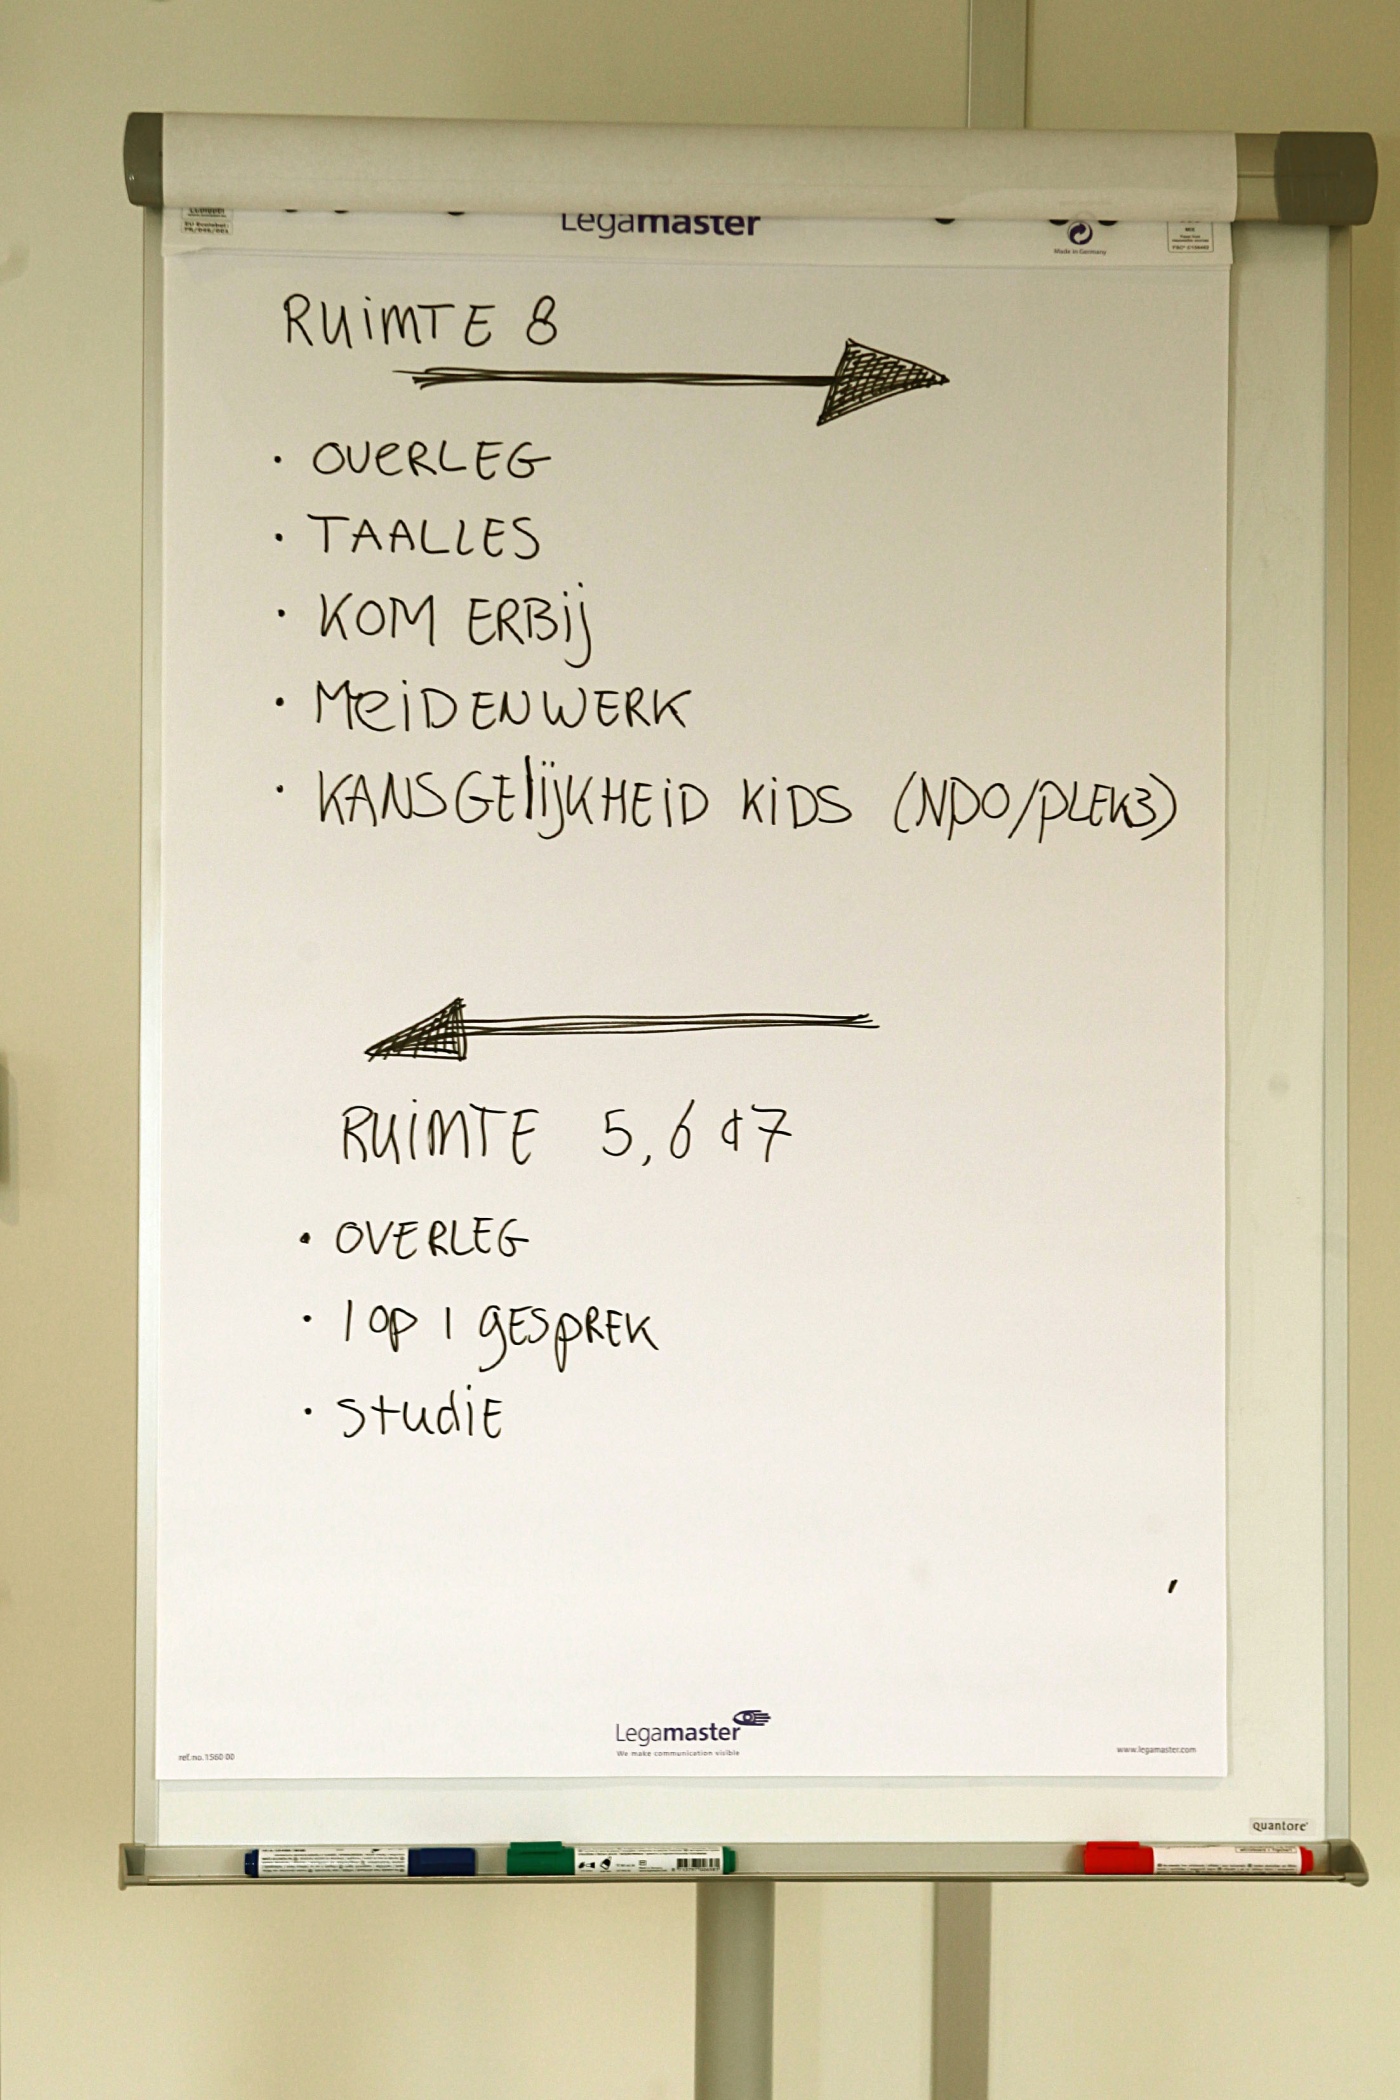 Legamaster
Made in Germany
RUiMTE 8
• OVERLEG
• TAALLES
• KOM ERBij
• MEiDENWERK
• KANSGElijKHEiD KiDS (NPO/PLEK3)
RUiMTE 5, 6 & 7
• OVERLEG
• 1 OP 1 gESpREK
• StudiE
Legamaster
We make communication visible
ref.no. 1560 00
www.legamaster.com
quantore